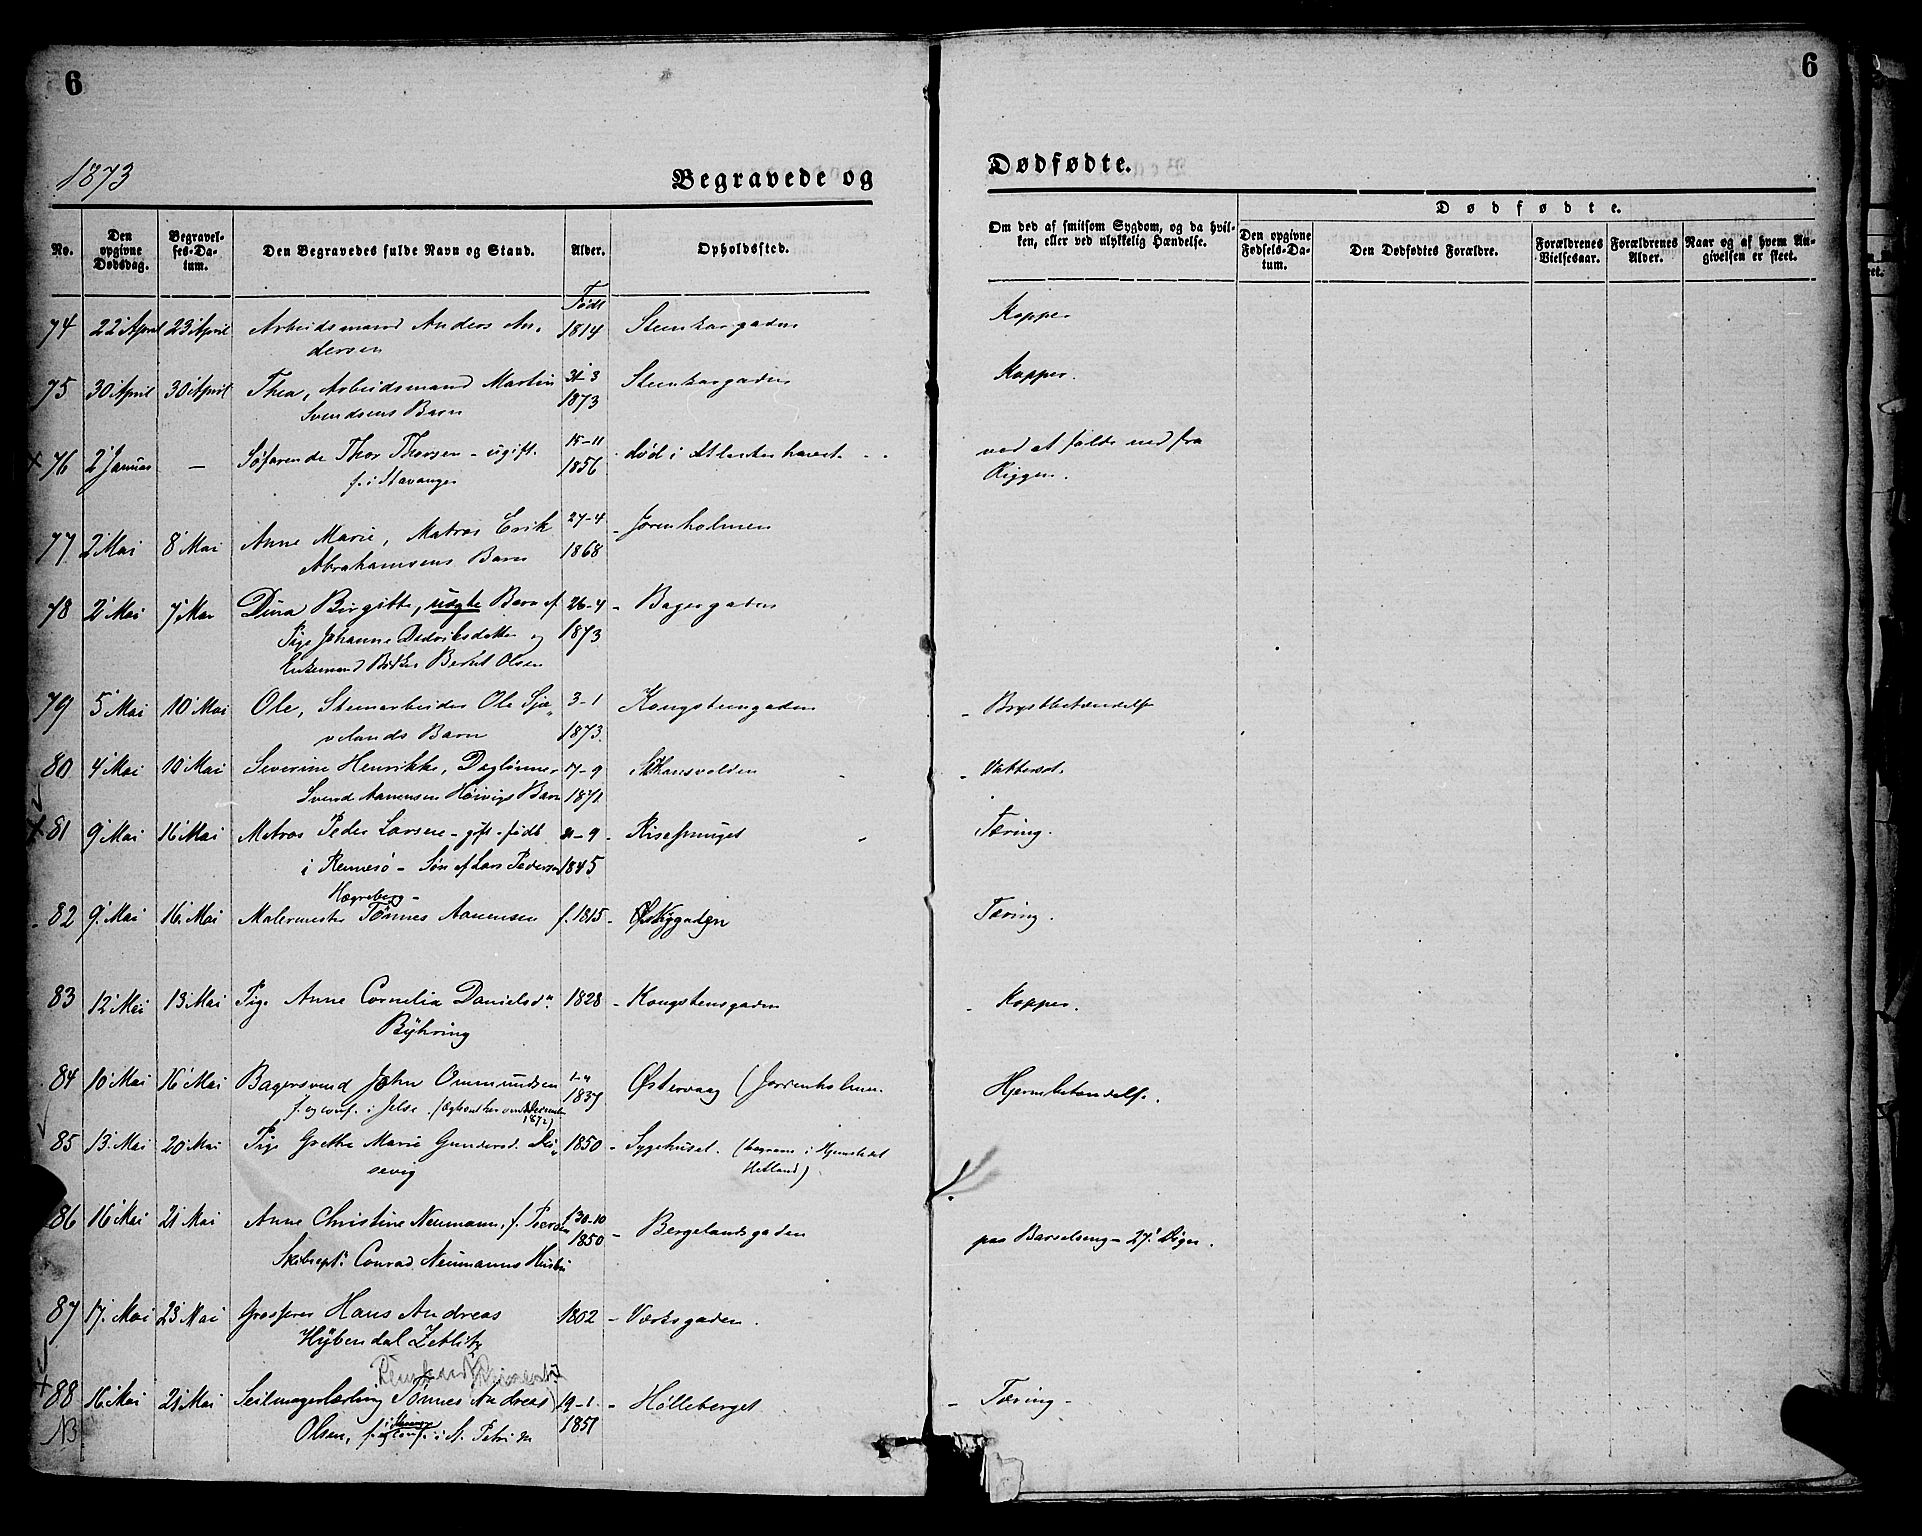 6
6
1873
Begravede og
Dødfødte.
No.
Den opgivne Dødsdag.
Begravelses-Datum.
Den Begravedes fulde Navn og Stand.
Alder.
Opholdssted.
Om død af smitsom Sygdom, og da hvilken, eller ved ulykkelig Hændelse.
Dødfødte.
Den opgivne Fødsels-Datum.
Den Dødfødtes Forældre.
Forældrenes Vielsesaar.
Forældrenes Alder.
Naar og af hvem Angivelsen er skeet.
Født
74 22 April 23 April Arbeidsmand Anders An- 1814 Steenkargaden Kopper
dersen
75 30 April 30 April Thea, Arbeidsmand Martin 31-3 Steenkargaden Kopper.
Svendsens Barn 1873
76 2 Januar — Søfarende Thor Thorsen - ugift. 15-11 død i Atlanterhavet ved at falde ned fra
f. i Stavanger 1856 Riggen.
77 2 Mai 8 Mai Anne Marie, Matros Erik 27-4 Jorenholmen
Abrahamsens Barn 1868
78 2 Mai 7 Mai Dina Birgitte, uægte Barn af 26-4 Bagergaden
Pige Johanne Diedriksdatter og 1873
Enkemand Bødker Berent Olsen
79 5 Mai 10 Mai Ole, Steenarbeider Ole Sjø- 3-1 Kongsteengaden Brystbetændelse
velands Barn 1873.
80 4 Mai 10 Mai Severine Henrikke, Daglønner 17-9 Skansevolden Vattersot.
Svend Aanensen Høivigs Barn 1871
81 9 Mai 16 Mai Matros Peder Larsen - gift - født -9 Risefmuget Tæring.
i Rennesø - Søn af Lars Pedersen 1845
Hægreberg -
82 9 Mai 16 Mai Malermester Tønnes Aanensen f. 1815 - Ø Nygaden Tæring.
83 12 Mai 13 Mai Pige Anne Cornelia Danielsd. 1828 - Kongsteensgaden Kopper.
Byhring
84 10 Mai 16 Mai Bagersvend John Ommundsen 1839 Østervaag (Jorenholmen Hjernebetændelse.
f. og conf. i Jelse
1872)
85 13 Mai 20 Mai Pige Grethe Marie Gundersd. 1850 - Sygehuset. (begraven i Hjemstedet
sevig Hetland)
86 16 Mai 21 Mai Anne Christine Neumann, f. 30-10 1850 - Bergelandsgaden paa Barselseng - 27 Dage.
Skibscapt: Conrad Neumanns Hustru
87 17. Mai 23 Mai Grosserer Hans Andreas 1802 - Værksgaden.
Hybendal Zetlitz
88 16 Mai 21 Mai Seilmagerlærling Tønnes Andreas 19-1 - Hølleberget Tæring -
NB Olsen, f. og conf. i St. Petri M 1851